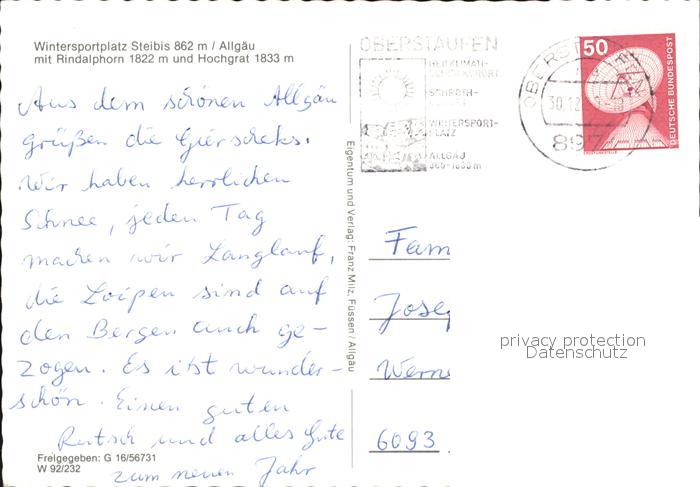 Wintersportplatz Steibis 862 m / Allgäu
mit Rindalphorn 1822 m und Hochgrat 1833 m
Aus dem schönen Allgäu
grüßen die Gierscheks.
Wir haben herrlichen
Schnee, jeden Tag
machen wir Langlauf,
die Loipen sind auf
den Bergen auch ge-
zogen. Es ist wunder-
schön. Einen guten
Rutsch und alles Gute
zum neuen Jahr
Freigegeben: G 16/56731
W 92/232
Eigentum und Verlag: Franz Milz, Füssen / Allgäu
OBERSTAUFEN
HEILKLIMATI-
SCHROTH-
WINTERSPORT-
PLATZ
ALLGÄU
OBERST
30.12
897
50
DEUTSCHE BUNDESPOST
Fam
Josef
Werne
6093
privacy protection
Datenschutz